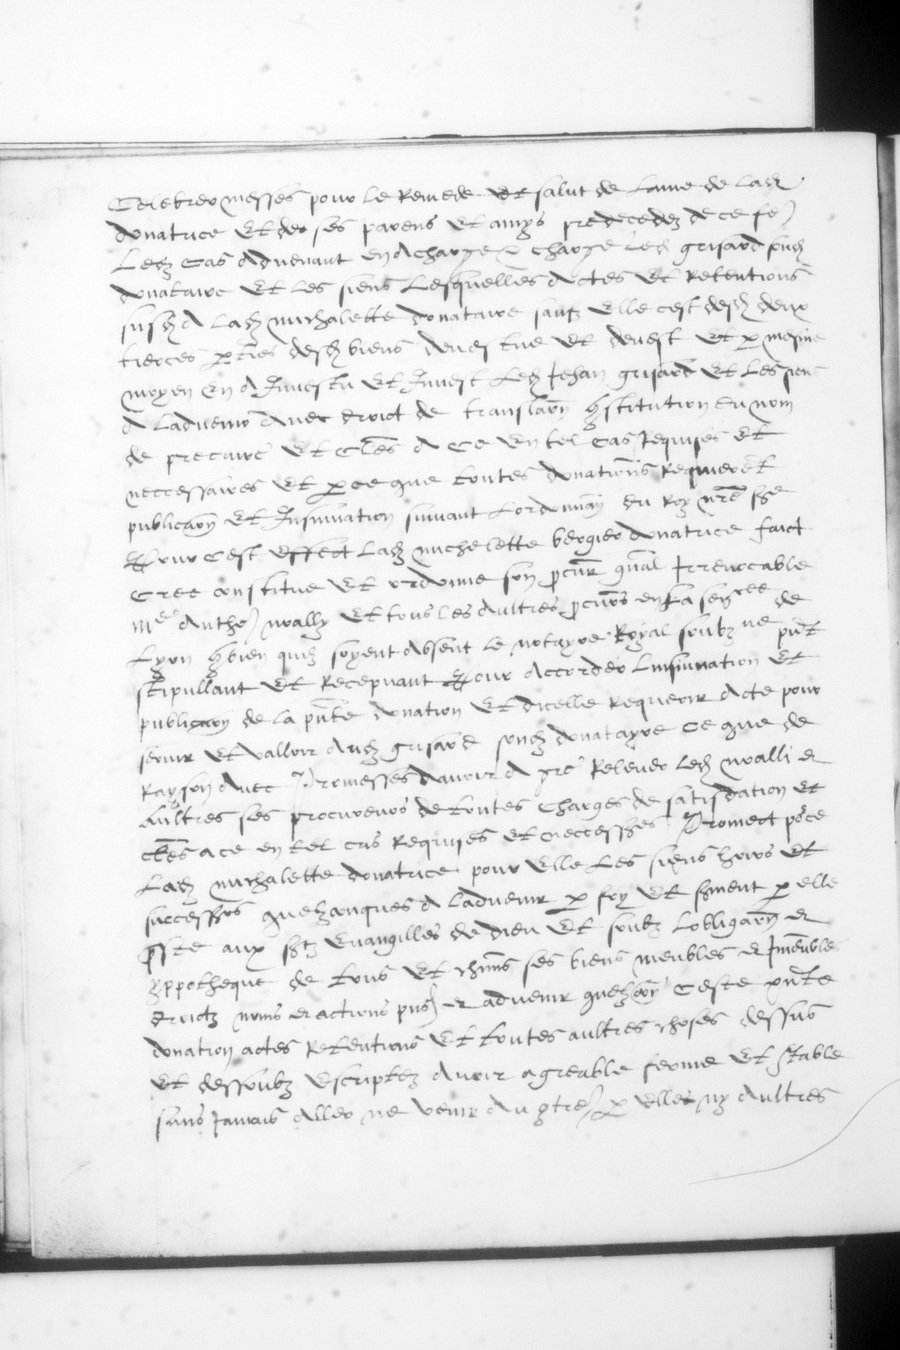 Celebrer messes pour le Remede Et salut de Lame de Ladz
donatrice Et de ses parens Et amys predecedez de ce fe
Ledz Cas Advenant en A charge charge Ledz grisard sudz
donataire Et Les siens Lesquelles Actes Et Retentions
susdz A Ladz michalette donataire sauf Elle cest desdz deux
tierces pties desdz biens devestue Et devest Et p mesme
moyen En A Investu Et Invest Ledz Jehan grisard Et Les siens
A Ladvenir Avec droict de translaon gstitution du nom
de precaire Et Cles A Ce En tel Cas Requises Et
neccessaires Et p ce que toutes donations Requieret
publicaon Et Insinuation suivant Lordonnan du Roy nre sre
Pour Cest Effect Ladz michelette bergier donatrice faict
Cree constitue Et ordonne son pcur gnal Irrevocable
Me Anthe wally Et tous les Aultres pcurs en La senee de
Lyon gbien quilz soyent Absent Le notayre Royal soubz ne pnt
stipullant Et Recepvant Pour Accorder Linsinuation Et
publicaon de la pnte donation Et dicelle Requerir Acte pour
servir Et valloir Audz grisard sondz donatayre Ce que de
Rayson Avec Promesses davoir A gre Relever Ledz walli et
Aultres ses procureurs de toutes Charges de satisdation Et
cles a ce en tel cas Requises Et neccessres Promect pce
Ladz michalette donatrice pour Elle Les siens hoirs Et
successrs quelzconques A Ladvenir p foy Et srment p elle
pste aux sts Evangilles de dieu Et soubz Lobligaon et
yppotheque de tous Et chuns ses biens meubles et Imeubles
droictz noms et actions pns et advenir quelzcon Ceste pnte
donation actes Retentions Et toutes aultres choses dessus
Et dessoubz Escriptes Avoir agreable ferme Et stable
sans Jamais Aller ne venir Au gtre p Elle ny Aultres